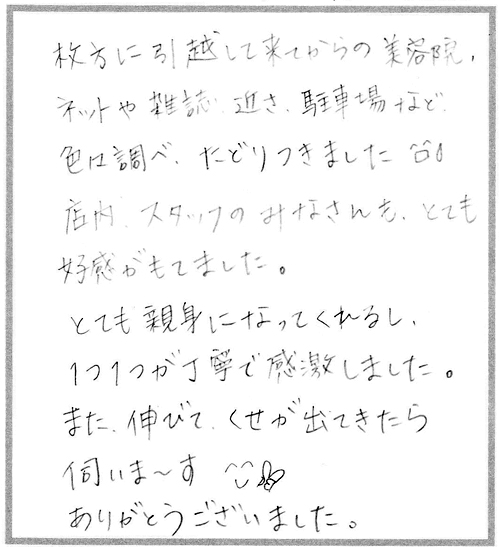 枚方に引越して来てからの美容院、
ネットや雑誌、近さ、駐車場など
色は調べ、たどりつきました
店内、スタッフのみなさんも、とても
好感がもてました。
とても親身になってくれるし、
1つ1つが丁寧で感激しました。
また、伸びて、くせが出てきたら
伺いま〜す
ありがとうございました。